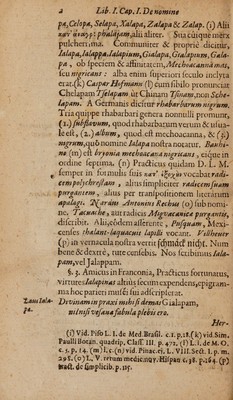 2 Lib. I. Cap. I. De nomine
pa, Celopa, Selapa, Xalapa, Zalapa & Zalap. (i) Alii
phalajam, alii aliter. Sua cuique merx
pulcherrima. Communiter & proprie dicitur,
Ialapa, Ialappa, Ialapium, Gialapa, Gialapum, Gala-
pa, ob speciem & affinitatem, Mechioacanna mas,
seu nigricans: alba enim superiori seculo inclyta
erat. (k) Caspar Hofmann (l) cum sibilo pronunciat
Chelapam Tsjelapam ut Chinam Tsinam, non Sche-
lapam. A Germanis dicitur rhabarbarum nigrum.
Tria quippe rhabarbari genera nonnulli promunt,
(1.) subflavum, quod rhabarbarum verum & usua-
le est, (2.) album, quod est mechoacanna, & (3.)
nigrum, quo nomine Ialapa nostra notatur. Bauhi-
na (m) est bryonia mechoacana nigricans, estque in
ordine septima. (n) Practicus quidam D. L. M.
semper in formulis suis vocabat radi-
cem polychrestam, alius simpliciter radicem suam
purgantem, alius per transpositionem literarum
apalagi. Naraim Antonini Rechus (o) sub nomi-
ne. Tacuache, aut radicis Mizquanicæ purgantis,
discribit. Alii, eodem afferente, Pusquam, Mexi-
censes thalant-laquacuis lapili vocant. Vielheuer
(p) in vernacula nostra vertit schmäck nicht. Num
bene & dextre, tute censebis. Nos scribimus Iala-
pam, vel Jalappam.
§. 3. Amicus in Franconia, Practicus fortunatus,
virtutes Ialapinas altius secum expendens, epigram-
ma hoc parieti musei sui adscripserat.
Divinam in praxi mihi si demas Gialapam,
mi nisi vesana fabula plebis ero.
Her-
(i) Vid. Piso L. I. de Med. Brasil. c. 1. p. 18. (k) vid Sim.
Paulli Botan. quadrip. Class. III. p. 472. (l) L. I. de M. O.
c. 3. p. 14. (m) l. c. (n) vid Pinac. ej. L. VIII. Sect. I. p. m.
298. (o) L. V. rerum medic. nov. Hispan c. 38. p. 164. (p)
tract. de simplicib. p. 115.